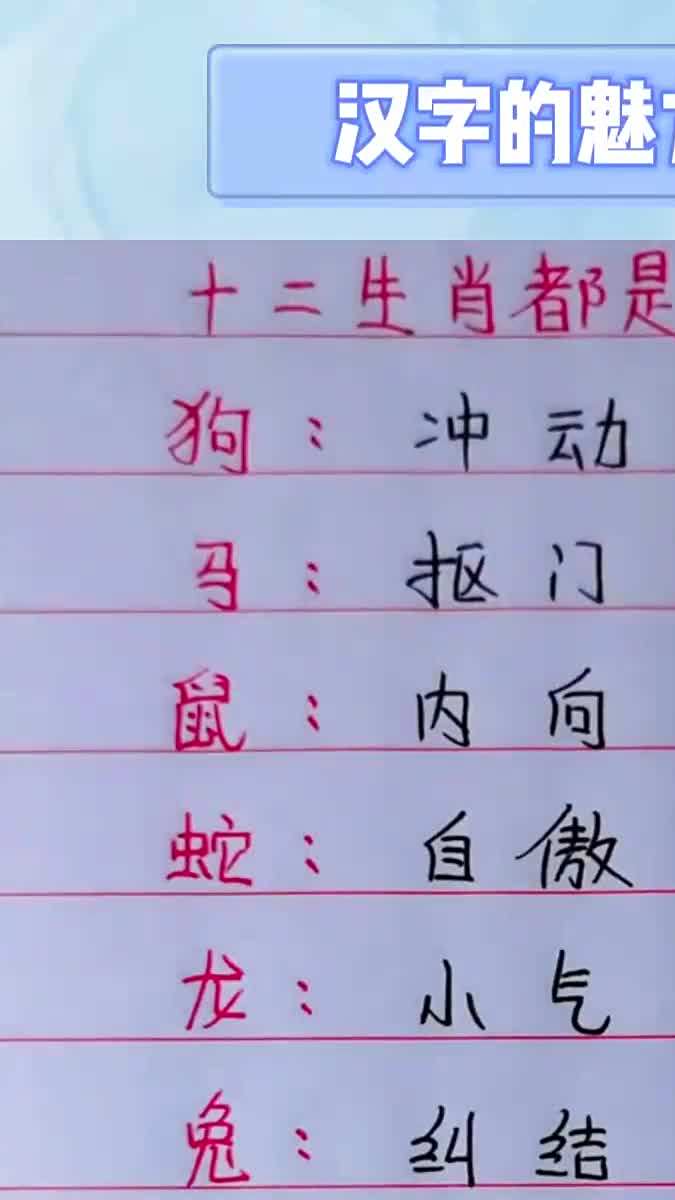 汉字的魅
十二生肖都是
狗：冲动
马：抠门
鼠：内向
蛇：自傲
龙：小气
兔：纠结